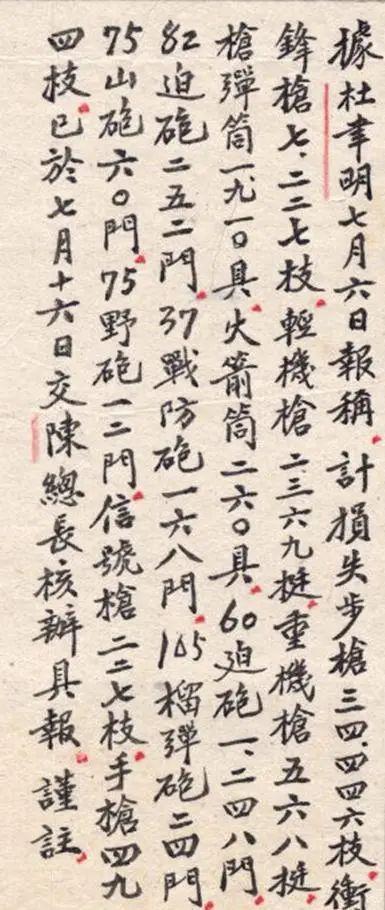 據杜聿明七月六日報稱計損失步槍三四、四四六枝衝
鋒槍七、二二七枝輕機槍二三六九挺重機槍五六八挺
槍彈筒一、九一〇具火箭筒二六〇具60迫砲一、二四八門
82迫砲二五二門37戰防砲一六八門105榴彈砲二四門
75山砲六〇門75野砲一二門信號槍二二七枝手槍四九
四枝已於七月十六日交陳總長核辦具報謹註